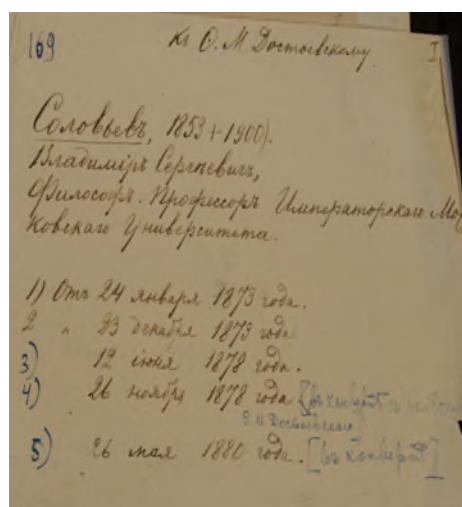 169 Къ Ѳ. М Достоевскому. I
Соловьевъ, 1853 + 1900).
Владиміръ Сергѣевичъ,
Философъ. Профессоръ Императорскаго Мос
ковскаго Университета.
1) Отъ 24 января 1873 года.
2 " 23 декабря 1873 года
3) 12 іюня 1878 года.
4) 26 ноября 1878 года [въ конвертѣ с
Достоевскаго
5) 26 мая 1880 года. [въ конвертѣ]